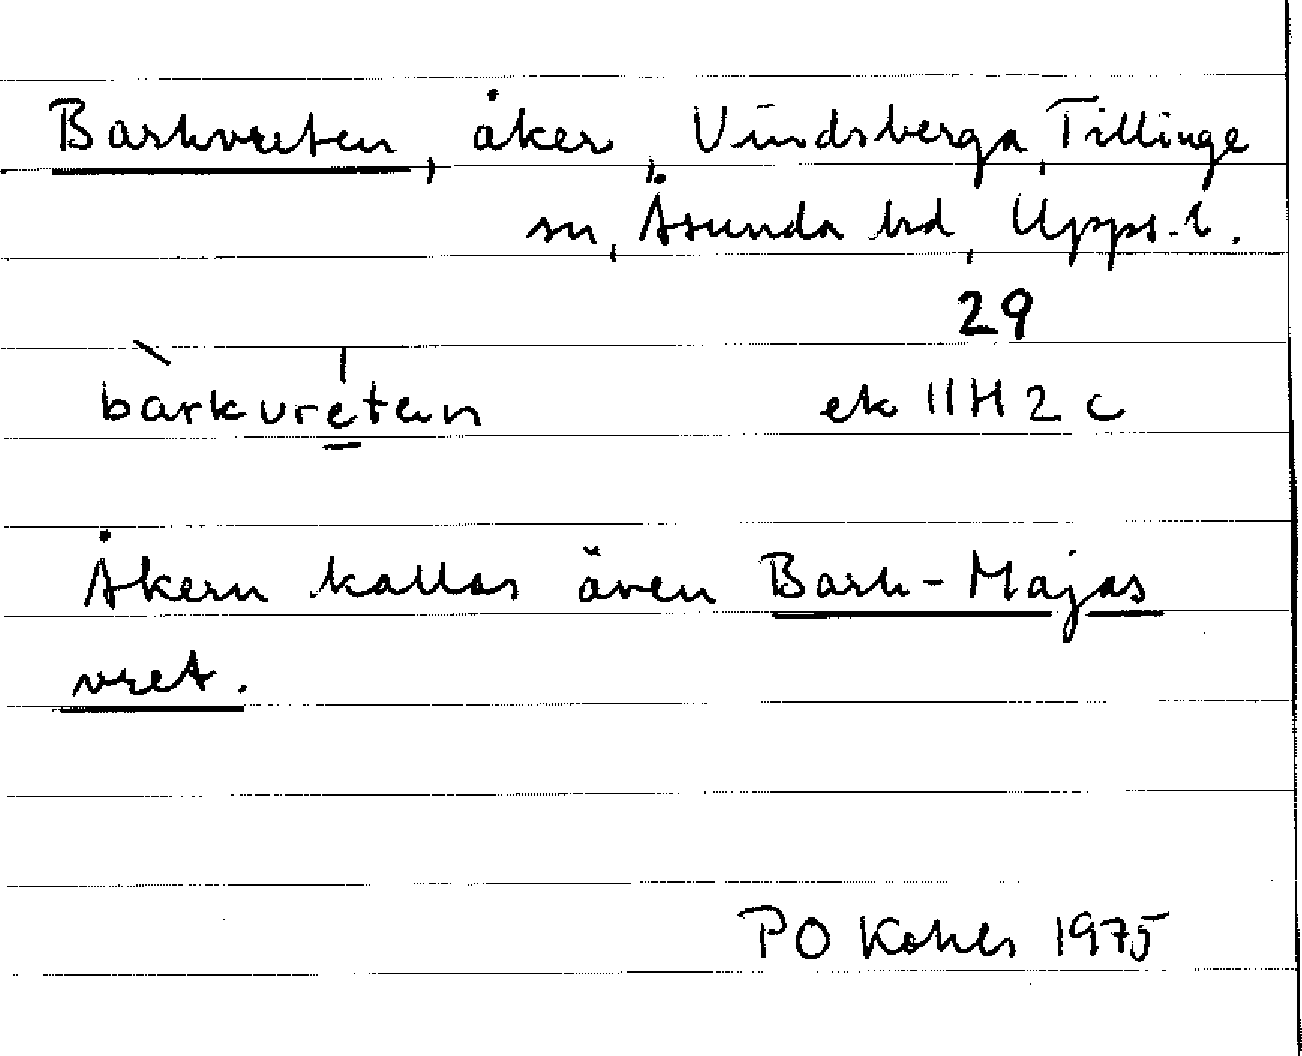 Barkvreten, åker, Vindsberga, Tillinge
sn, Åsunda hd, Upps. l.
29
bàrkvréten ek 11H 2 c
Åkern kallas även Bark-Majas
vret.
PO 1975